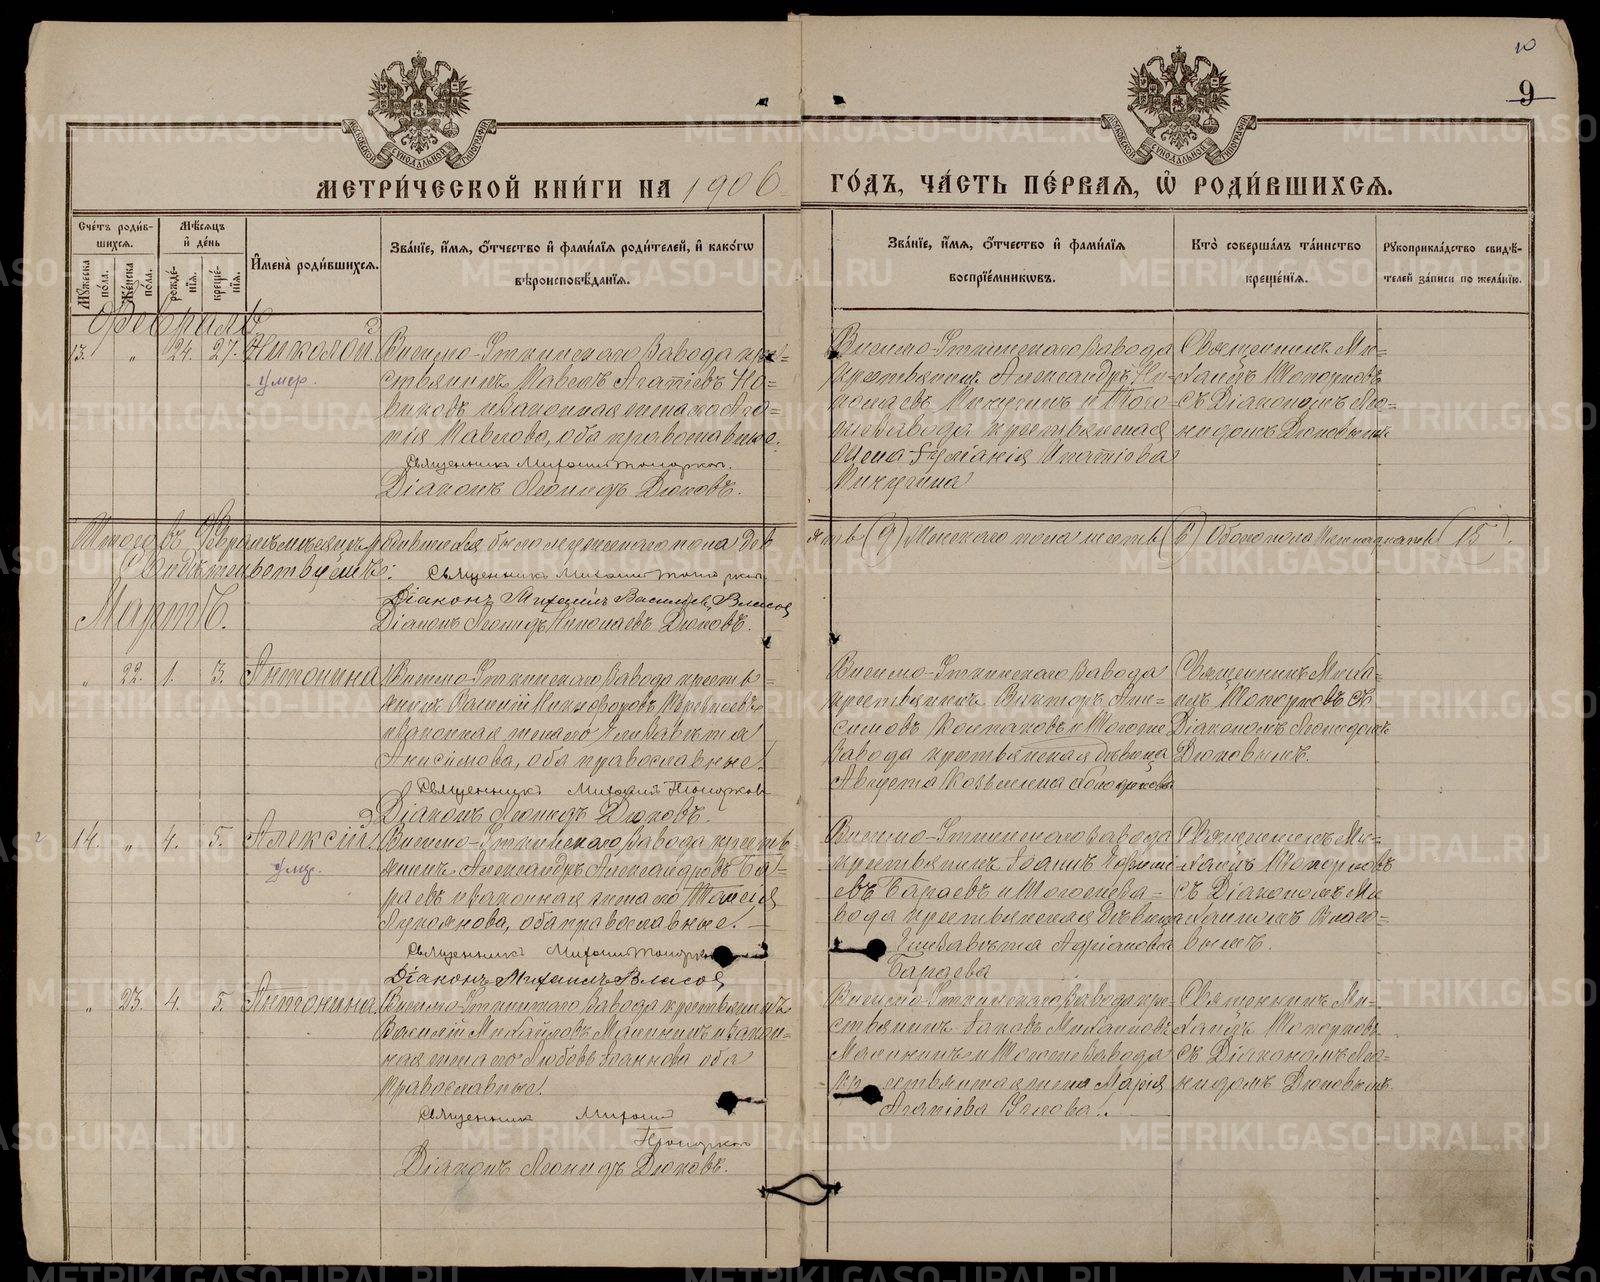 10
9
МЕТРИ́ЧЕСКОЙ КНИ́ГИ НА 1906
ГО́ДЪ, ЧА́СТЬ ПЕ́РВАЯ, Ѡ҆ РОДИ́ВШИХСЯ.
Сче́тъ роди́в-
шихся.
Мѣ́сяцъ
и҆ де́нь
Мꙋ́жеска по́ла.
Же́нска по́ла.
рожде́-
нїя.
креще́-
нїя.
И҆мена̀ роди́вшихся.
Зва́нїе, и҆́мя, ѻ҆́тчество и҆ фами́лїя роди́телей, и҆ како́гѡ
вѣроисповѣ́данїя.
Зва́нїе, и҆́мя, ѻ҆́тчество и҆ фами́лїя
воспрїе́мникѡвъ.
Кто̀ соверша́лъ та́инство
креще́нїя.
Рꙋкоприкла́дство свидѣ́-
телей за́писи по жела́нїю.
Февраль
13. " 24. 27. Николай
умер.
Висимо-Уткинскаго Завода кре-
стьянинъ Павелъ Агапіевъ Но-
виковъ и законная жена его
Павлова, оба православные.
Священникъ Михаилъ Топорковъ.
Діаконъ Леонидъ Дюковъ.
Висимо-Уткинскаго Завода
крестьянинъ Александръ Ни-
колаевъ Пичугинъ и того-
же Завода крестьянская
жена Игнатіева
Пичугина
Священникъ Ми-
хаилъ Топорковъ
съ Діакономъ Лео-
нидомъ Дюковымъ
Итого въ Февралѣ мѣсяцѣ родившихся было мужескаго пола дев
ять (9) Женскаго пола шесть (6) Обоего пола Пятнадцать (15).
Свидѣтельствуемъ: Священникъ Михаилъ Топорковъ
Діаконъ Михаилъ Васильевъ Власовъ
Діаконъ Леонидъ Николаевъ Дюковъ.
Мартъ.
" 22. 1. 3. Антонина
Висимо-Уткинскаго Завода кресть-
янинъ Василій Никифоровъ
и законная жена его Елизавета
Анисимова, оба православные.
Священникъ Михаилъ Топорковъ
Діаконъ Леонидъ Дюковъ.
Висимо-Уткинскаго Завода
крестьянинъ Викторъ Ани-
симовъ и тогоже
Завода крестьянская дѣвица
Августа Козьмина
Священникъ Миха-
илъ Топорковъ съ
Діакономъ Леонидомъ
Дюковымъ.
14. " 4. 5. Алексій
умер.
Висимо-Уткинскаго Завода кресть
янинъ Александръ Александровъ Ба-
раевъ и законная жена его Таисія
Лукоянова, оба православные.
Священникъ Михаилъ Топорковъ
Діаконъ Михаилъ Власовъ
Висимо-Уткинскаго Завода
крестьянинъ Іоаннъ Ефимі-
евъ Бараевъ и тогоже За-
вода крестьянская дѣвица
Елизавета Адріанова
Бараева
Священникъ Ми-
хаилъ Топорковъ
съ Діакономъ Ми
хаиломъ Власо-
вымъ.
" 23. 4. 5. Антонина
Висимо-Уткинскаго Завода крестьянинъ
Василій Михаиловъ Малининъ и закон-
ная жена его Любовь Іоаннова оба
православные.
Священникъ Михаилъ
Топорковъ
Діаконъ Леонидъ Дюковъ.
Висимо-Уткинскаго Завода кре-
стьянинъ Іаковъ Михаиловъ
Малининъ и тогоже Завода
крестьянская жена Марія
Агапіева
Священникъ Ми-
хаилъ Топорковъ
съ Діакономъ Лео-
нидомъ Дюковымъ.
METRIKI.GASO-URAL.RU